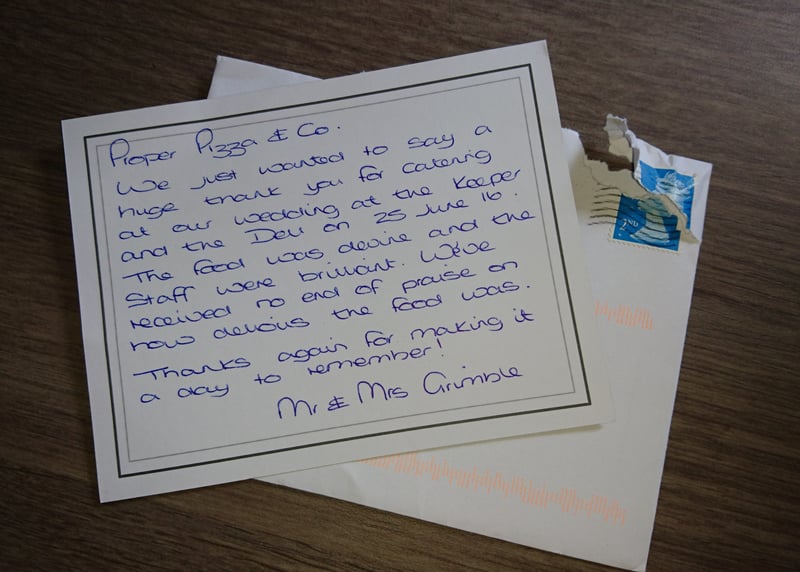 Proper Pizza & Co.
We just wanted to say a
huge thank you for catering
at our wedding at the Keeper
and the Dell on 25 June 16.
The food was devine and the
Staff were brilliant. We've
received no end of praise on
how delious the food was.
Thanks again for making it
a day to remember!
Mr & Mrs Grimble
2ND